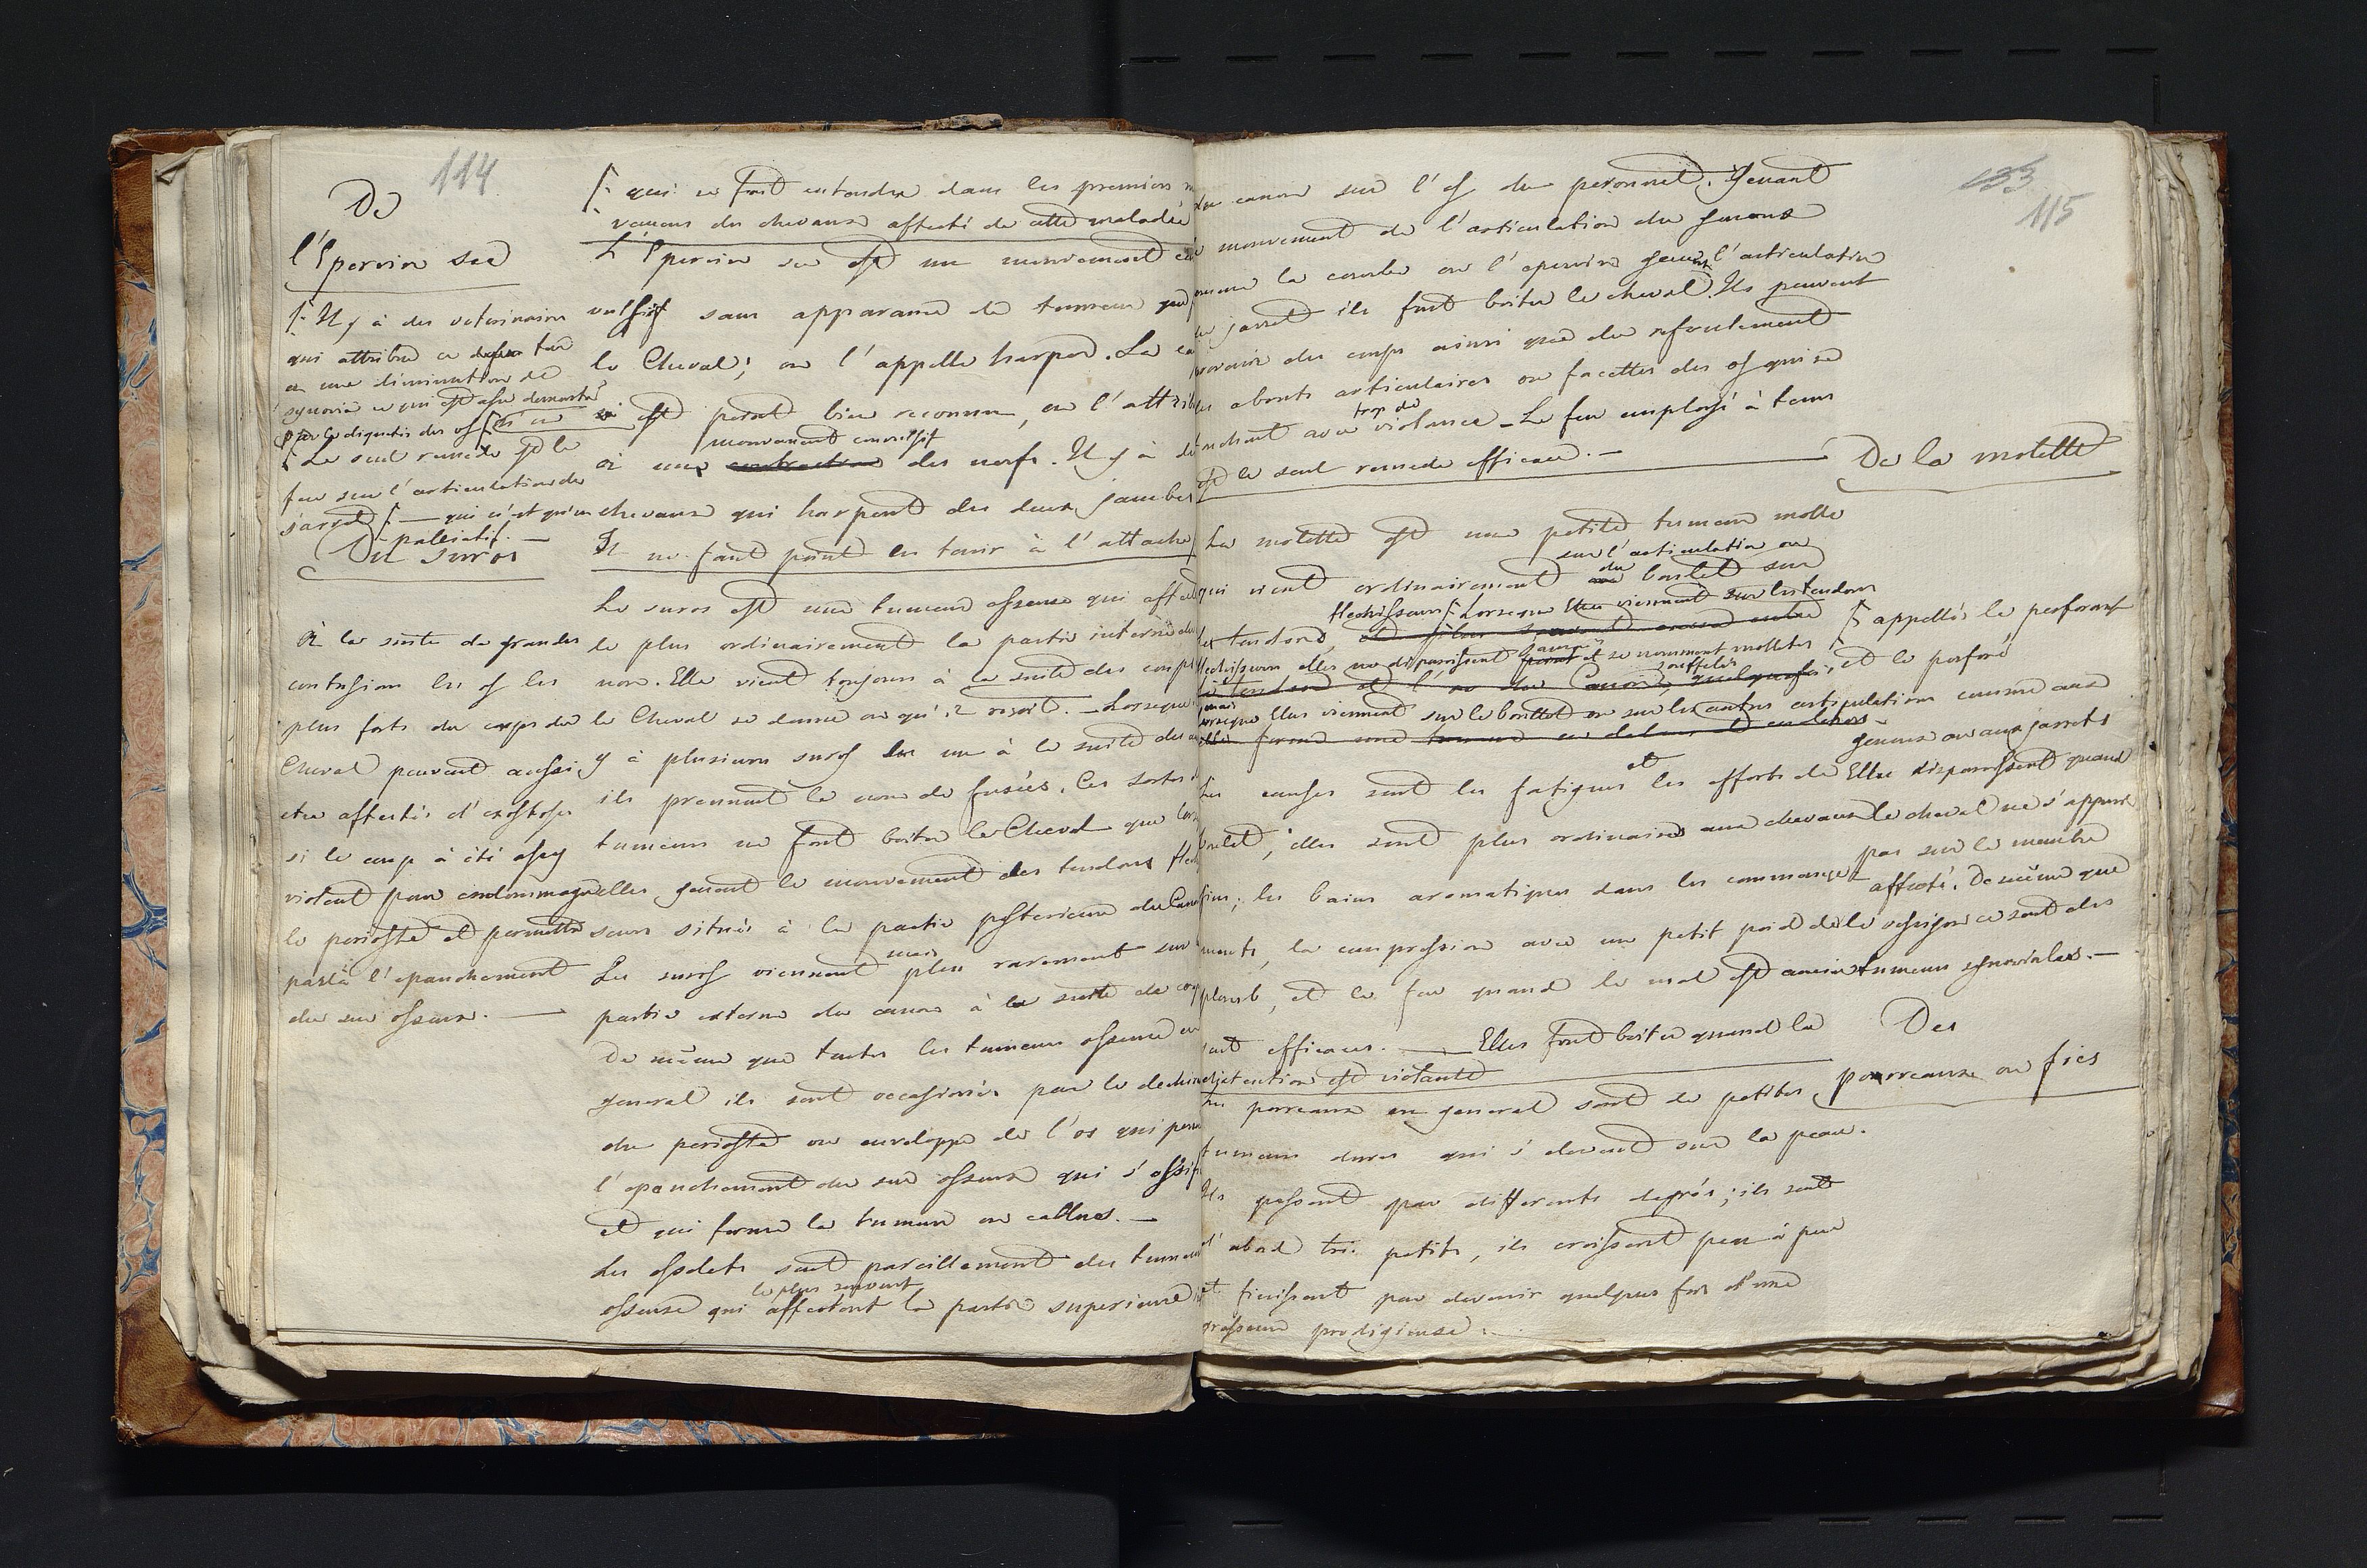 114
De
l'Epervin sec
/: Il y à des veterinaires
qui attribue ce
a une diminution de
synovie ce qui est assez demontré
par le diquetis des os
/: Le seul remede est le
feu sur l'articulation du
jarret /: — qui n'est qu'un
paleiatif. —
Du suros
à la suite de grandes
contusions les os les
plus forts du corps du
Cheval peuvent aussi
etre affectés d'exostoses
si le coup à été assez
violent pour endommager
le perioste et permettre
par là l'epanchement
du suc osseux. —
/: qui se fait entendre dans les premiers
des chevaux affecté de cette maladie
L'Epervin sec est un mouvement con
vulsif sans apparance de tumeur que
le Cheval; on l'appelle harper. La ca
est point bien reconnue, on l'attri
mouvement convulsif
à une contraction des nerfs. Il y à de
chevaux qui harpent des deux jambes
Il ne faut point les tenir à l'attache
Le suros est une tumeur osseuse qui affe
le plus ordinairement la partie interne du
non. Elle vient toujours à la suite des coups
le Cheval se donne ou qu'il reçoit. — Lorsque
y à plusieurs suros l'un à la suite des
ils prennent le nom de fusées. Ces sortes
tumeurs ne font boiter le Cheval que lors
elles genent le mouvement des tendons flech
seurs situés à la partie posterieure du Canon
mais
Les suros viennent plus rarement sur
partie externe du canon à la suite de cou
De même que toutes les tumeurs osseuse en
general ils sont occasionnés par le dechi
du perioste ou enveloppe de l'os qui perm
l'epanchement du suc osseux qui s'ossif
et qui forme la tumeur ou callus. —
Les osselets sont pareillement des tumeur
le plus souvent
osseuse qui affectent la partie superieure
133
115
du canon sur l'os du peronnet. Genant
le mouvement de l'articulation du genoux
comme la courbe ou l'epervin genent l'articulation
du jarret ils font boiter le cheval. Ils peuvent
provenir des coups ainsi que du refoulement
des abouts articulaires ou facettes des os qui se
trop de
touchent avec violance — Le feu employé à tems
est le seul remede efficace. —
De la molette
La molette est une petite tumeur molle
sur l'articulation ou
qui vient ordinairement au du boulet sur
flechisseurs /: Lorsque Elles viennent sur les tendons
les tendons,
/: appellés le perforant
flechisseurs elles ne disparoissent jamais et se nomment molettes
soufflées
et le perforé
Canon, quelquefois
mais
lorsque Elles viennent sur le boullet ou sur les autres articulations comme aux
genoux ou aux jarrets
elle forme une tumeur en dedans et en dehors —
et
Les causes sont les fatigues les efforts de
Elles disparoissent quand
boulet; elles sont plus ordinaires aux chevaux
le cheval ne s'appuie
pas sur le membre
fins; les bains aromatiques dans les commence
affecté. De même que
ments, la compression avec un petit poid de
le vessigon ce sont des
plomb, et le feu quand le mal est ancien
tumeurs synoviales. —
sont efficaces. — Elles font boiter quand la
distention est violante
Des
porreaux ou fics
Les porreaux en general sont de petites
tumeurs dures qui s'elevent sur la peau.
Ils passent par differents degrés; ils sont
d'abord très petits, ils croissent peu à peu
et finissent par devenir quelques fois d'une
grosseur prodigieuse.